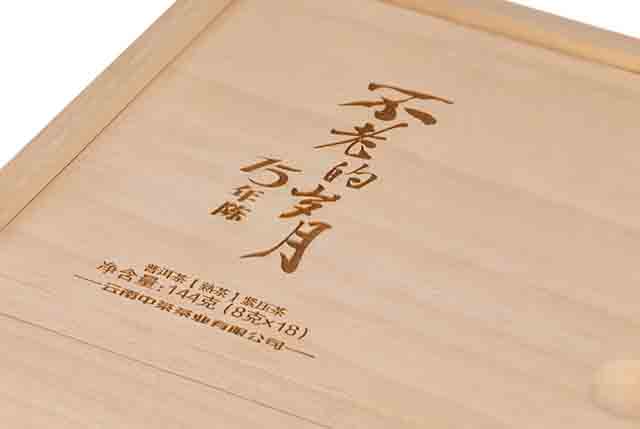 不老的岁月
15年陈
普洱茶【熟茶】紧压茶
净含量：144克（8克×18）
云南中茶茶业有限公司